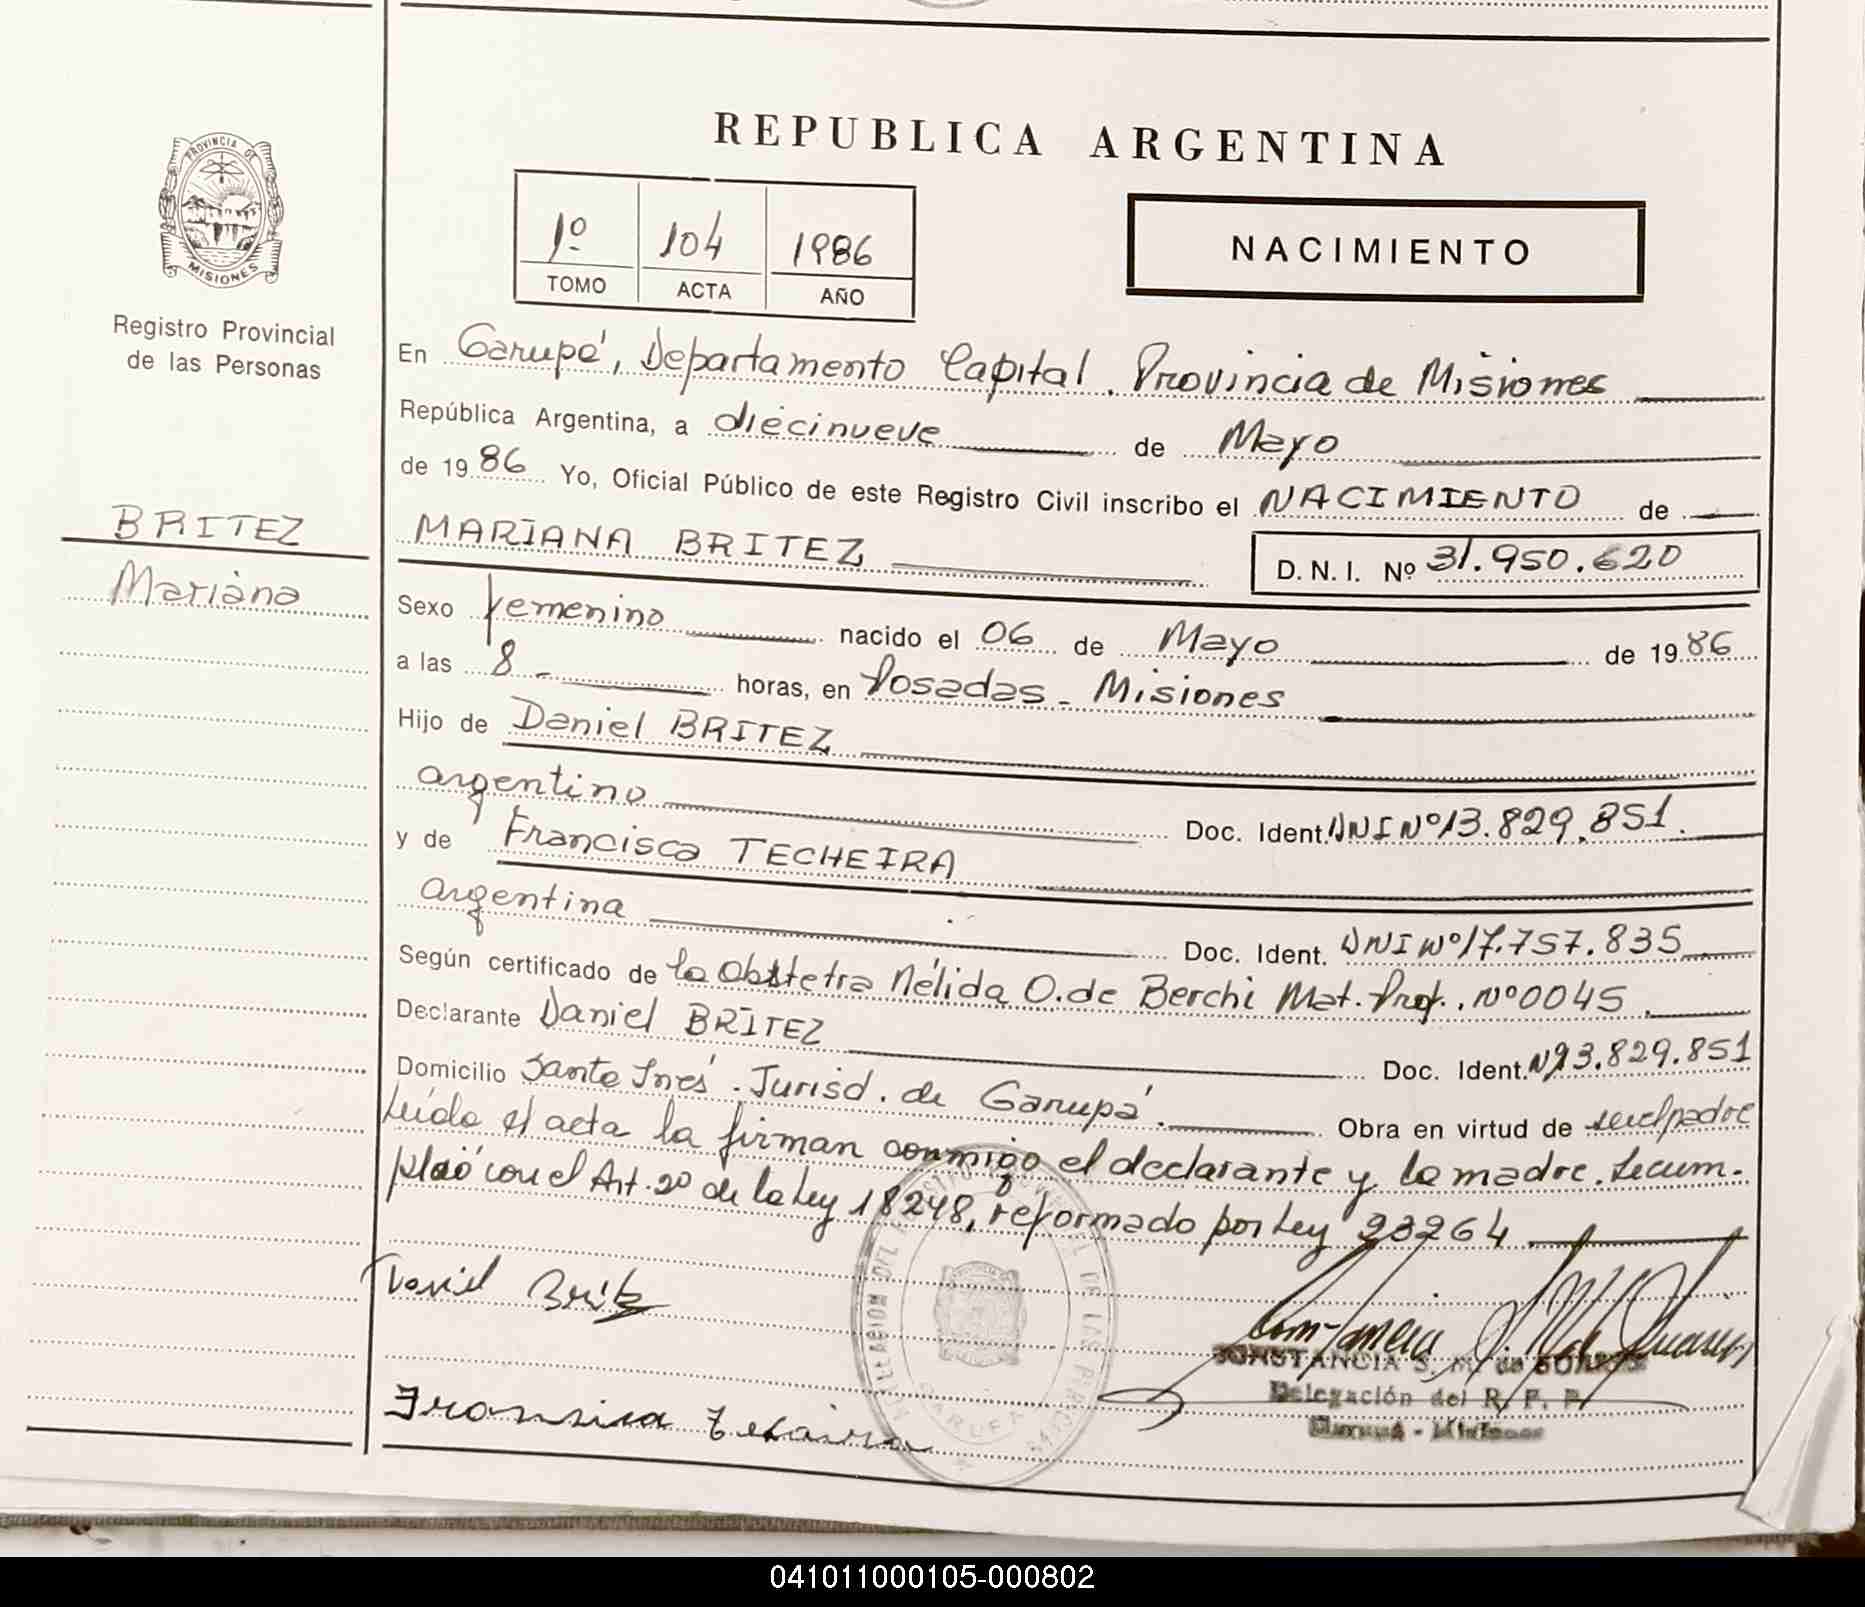 REPUBLICA ARGENTINA
PROVINCIA DE
MISIONES
Registro Provincial
de las Personas
1º 104 1986
TOMO ACTA AÑO
NACIMIENTO
En Garupá, Departamento Capital. Provincia de Misiones
República Argentina, a diecinueve de Mayo
de 1986 Yo, Oficial Público de este Registro Civil inscribo el NACIMIENTO de
BRITEZ
Mariana
MARIANA BRITEZ D.N.I. Nº 31.950.620
Sexo femenino nacido el 06 de Mayo de 1986
a las 8 - horas, en Posadas - Misiones
Hijo de Daniel BRITEZ
argentino Doc. Ident. DNI Nº 13.829.851.
y de Francisca TECHEIRA
argentina Doc. Ident. DNI Nº 17.757.835
Según certificado de la Obstetra Nélida O. de Berchi Mat. Prof. Nº 0045
Declarante Daniel BRITEZ Doc. Ident. Nº 13.829.851
Domicilio Santa Inés. Jurisd. de Garupá. Obra en virtud de ser el padre
Leída el acta la firman conmigo el declarante y la madre. Se cum-
plió con el Art. 2º de la Ley 18248, reformado por Ley 23264
Daniel Britez
DELEGACION DEL REGISTRO PROVINCIAL DE LAS PERSONAS
GARUPA
CONSTANCIA S. M. de SUAREZ
Delegación del R. P. P.
Garupá - Misiones
041011000105-000802